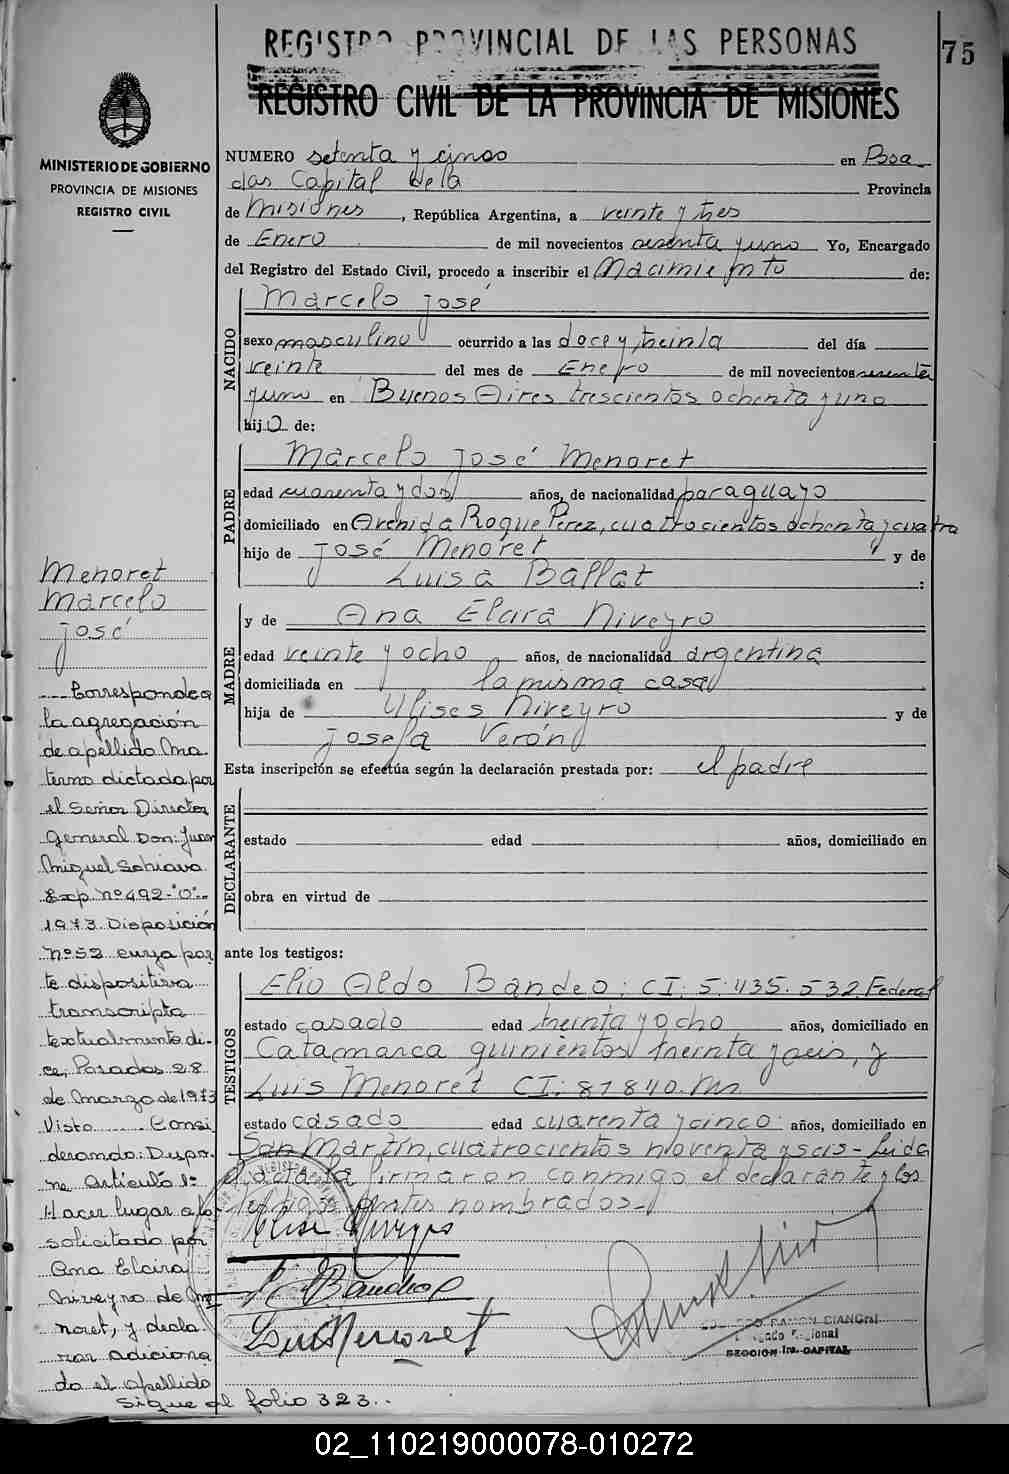 REGISTRO PROVINCIAL DE LAS PERSONAS
75
REGISTRO CIVIL DE LA PROVINCIA DE MISIONES
MINISTERIO DE GOBIERNO
PROVINCIA DE MISIONES
REGISTRO CIVIL
NUMERO setenta y cinco en Posa
das Capital de la Provincia
de Misiones, República Argentina, a veinte y tres
de Enero de mil novecientos sesenta y uno Yo, Encargado
del Registro del Estado Civil, procedo a inscribir el Nacimiento de:
NACIDO
Marcelo José
sexo masculino ocurrido a las doce y treinta del día
veinte del mes de Enero de mil novecientos sesenta
y uno en Buenos Aires trescientos ochenta y uno
hijo de:
PADRE
Marcelo José Menoret
edad cuarenta y dos años, de nacionalidad paraguayo
domiciliado en Avenida Roque Perez, cuatrocientos ochenta y cuatro
hijo de José Menoret y de
Luisa Ballat :
MADRE
y de Ana Elcira Niveyro
edad veinte y ocho años, de nacionalidad argentina
domiciliada en la misma casa
hija de Ulises Niveyro y de
Josefa Verón
Esta inscripción se efectúa según la declaración prestada por: el padre
DECLARANTE
estado edad años, domiciliado en
obra en virtud de
ante los testigos:
TESTIGOS
Elio Aldo Bandeo: CI: 5.435.532 Federal
estado casado edad treinta y ocho años, domiciliado en
Catamarca quinientos treinta y seis, y
Luis Menoret CI: 81840.Mn
estado casado edad cuarenta y cinco años, domiciliado en
San Martín, cuatrocientos noventa y seis - Leida
el acta la firmaron conmigo el declarante y los
testigos antes nombrados.-
Luis Menoret
RAMON BIANCHI
Delegado Regional
SECCION 1ra. CAPITAL
Menoret
Marcelo
José
Corresponde a
la agregación
de apellido Ma
terno dictada por
el Señor Director
General Don: Juan
Miguel Schiavo
Exp. Nº 492-"O"-
1973 Disposición
Nº 52 cuya par
te dispositiva
transcripta
textualmente di-
ce, Posadas 28
de Marzo de 1973
Visto Consi
derando: Dispo-
ne Artículo 1º
Hacer lugar a lo
solicitado por
Ana Elcira
Niveyro de Me
noret, y decla
rar adiciona
do el apellido
sigue al folio 323..
02_110219000078-010272